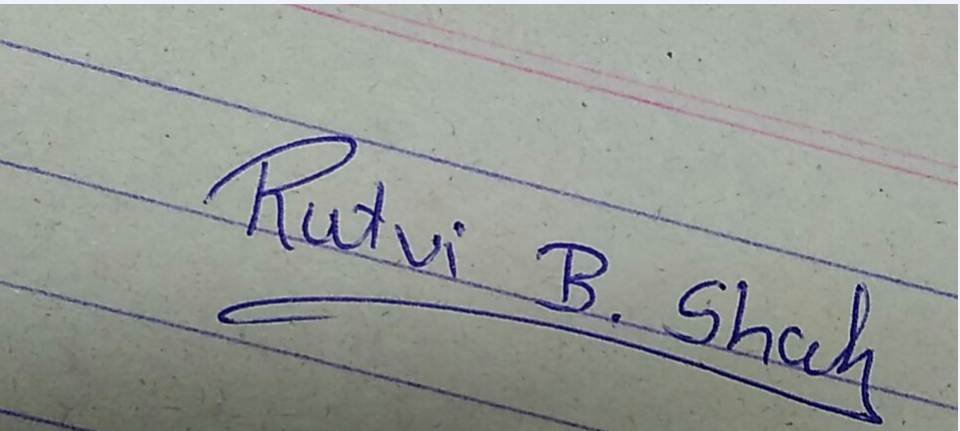 Rutvi B. Shah